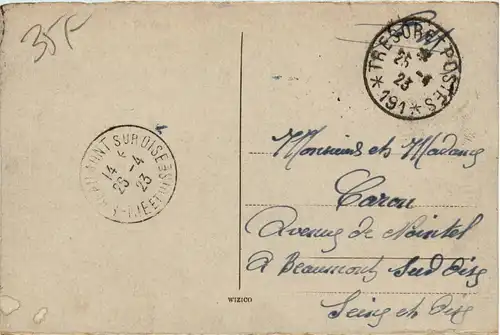 35F
F.M.
TRESOR ET POSTES
26 -4
23
* 191 *
BEAUMONT SUR OISE
14
26 -4
23
SEINE ET OISE
Monsieur et Madame
Caron
Avenue de Nointel
A Beaumont Sud Oise
Seine et Oise
WIZICO